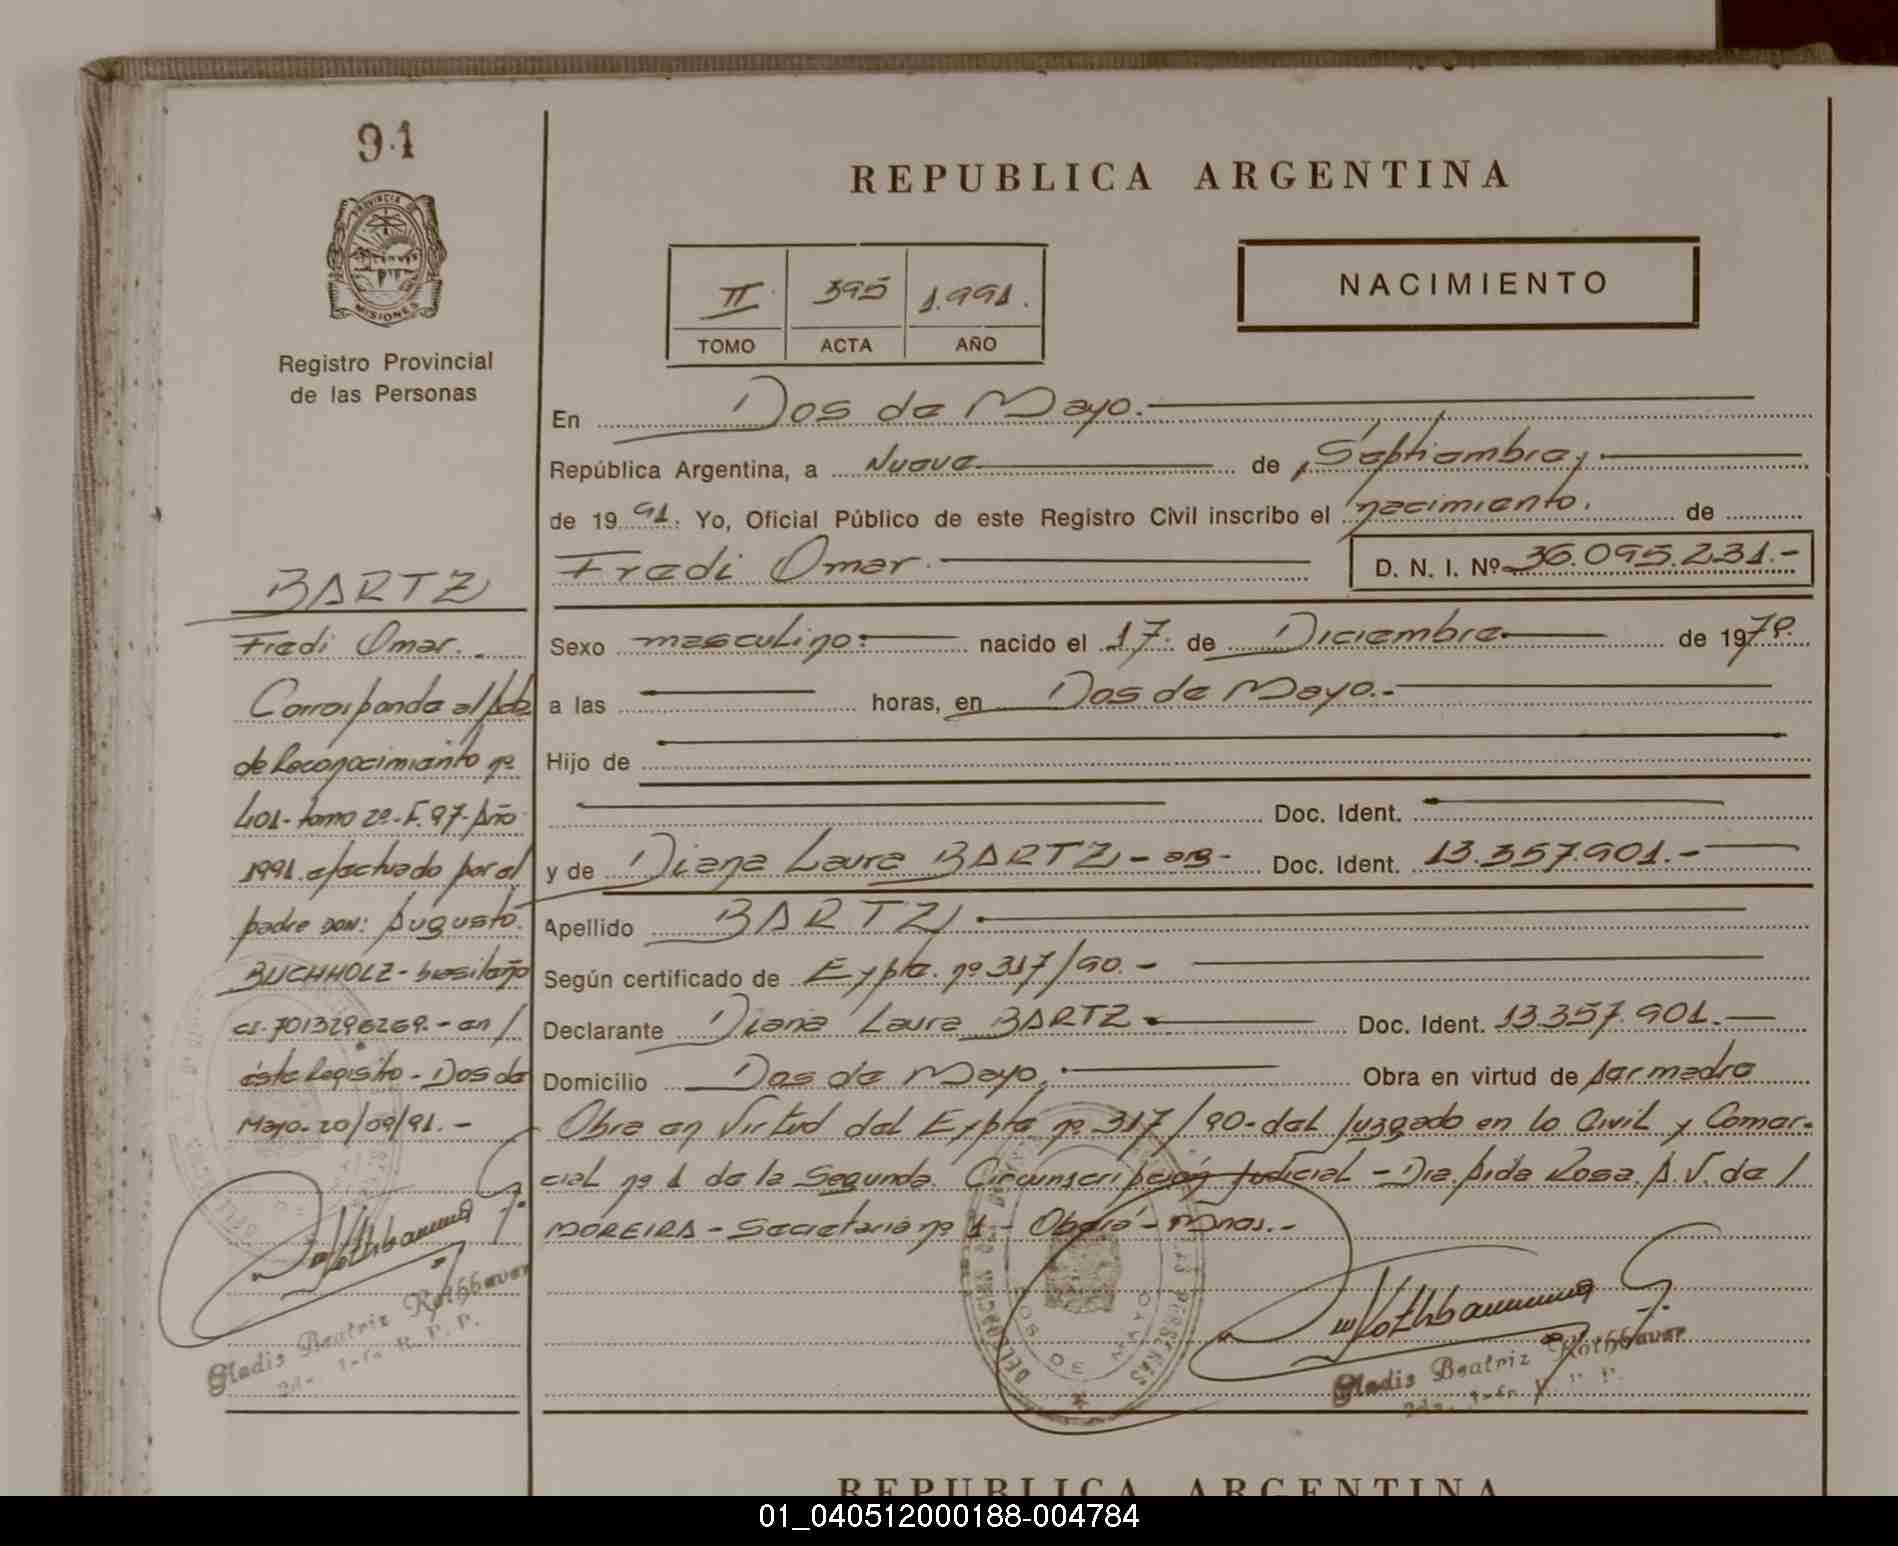 91
PROVINCIA DE
MISIONES
Registro Provincial
de las Personas
REPUBLICA ARGENTINA
II 395 1.991.
TOMO ACTA AÑO
NACIMIENTO
En Dos de Mayo.
República Argentina, a Nueve de Septiembre,
de 19 91. Yo, Oficial Público de este Registro Civil inscribo el nacimiento. de
Fredi Omar. D. N. I. Nº 36.095.231.-
Sexo masculino. nacido el 17. de Diciembre de 1979.
a las horas, en Dos de Mayo.-
Hijo de
Doc. Ident.
y de Diana Laura BARTZ - arg- Doc. Ident. 13.357.901.-
Apellido BARTZ
Según certificado de Expte. nº 317/90.-
Declarante Diana Laura BARTZ Doc. Ident. 13.357.901.-
Domicilio Dos de Mayo. Obra en virtud de ser madre
Obra en Virtud del Expte nº 317/90- del Juzgado en lo Civil y Comer-
cial nº 1 de la Segunda Circunscripción Judicial - Dra. Aida Rosa. A. V. de /
MOREIRA - Secretaria nº 1 - Oberá - Mnes.-
Gladis Beatriz Rothbauer
BARTZ
Fredi Omar.
Corresponde al Acta
de Reconocimiento nº
401- tomo 2º- F. 97- Año
1991. efectuado por el
padre DON: Augusto.
BUCHHOLZ - brasileño
CI. 7013296269.- en /
éste Registro - Dos de
Mayo- 20/09/91.-
Gladis Beatriz Rothbauer
R. P. P.
REPUBLICA ARGENTINA
01_040512000188-004784